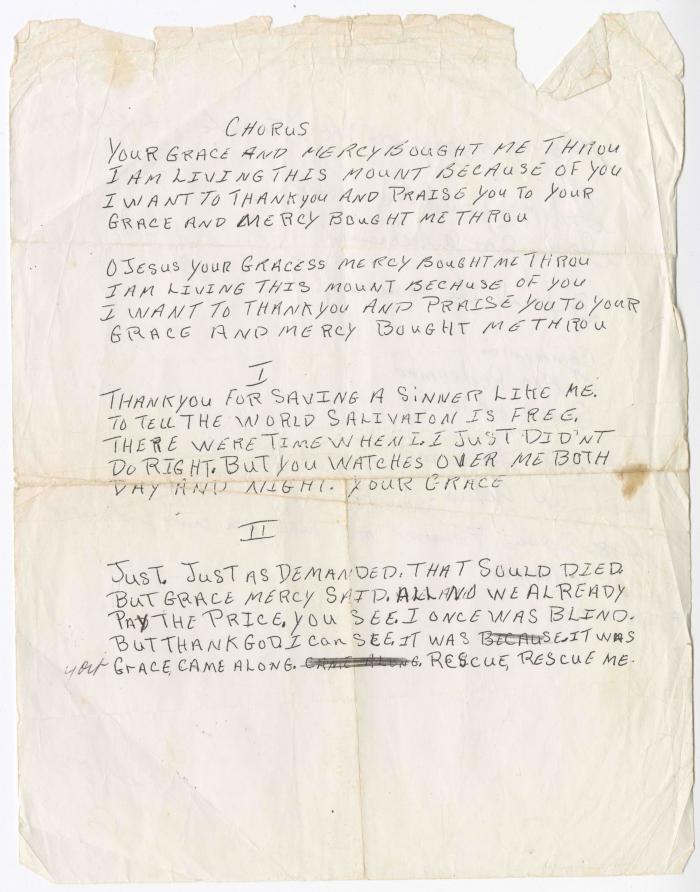 CHORUS
YOUR GRACE AND MERCY BOUGHT ME THROU
I AM LIVING THIS MOUNT BECAUSE OF YOU
I WANT TO THANKYOU AND PRAISE YOU TO YOUR
GRACE AND MERCY BOUGHT ME THROU
O JESUS YOUR GRACESS MERCY BOUGHT ME THROU
I AM LIVING THIS MOUNT BECAUSE OF YOU
I WANT TO THANKYOU AND PRAISE YOU TO YOUR
GRACE AND MERCY BOUGHT ME THROU
I
THANKYOU FOR SAVING A SINNER LIKE ME.
TO TELL THE WORLD SALIVAION IS FREE.
THERE WERE TIME WHEN I. I JUST DID'NT
DO RIGHT. BUT YOU WATCHES OVER ME BOTH
DAY AND NIGHT. YOUR GRACE
II
JUST. JUST AS DEMANDED. THAT SOULD DIED.
BUT GRACE MERCY SAID. ALL AND WE ALREADY
PAY THE PRICE. YOU SEE. I ONCE WAS BLIND.
BUT THANK GOD I CAN SEE. IT WAS BECAUSE. IT WAS
your GRACE CAME ALONG. CAME ALONG. RESCUE, RESCUE ME.